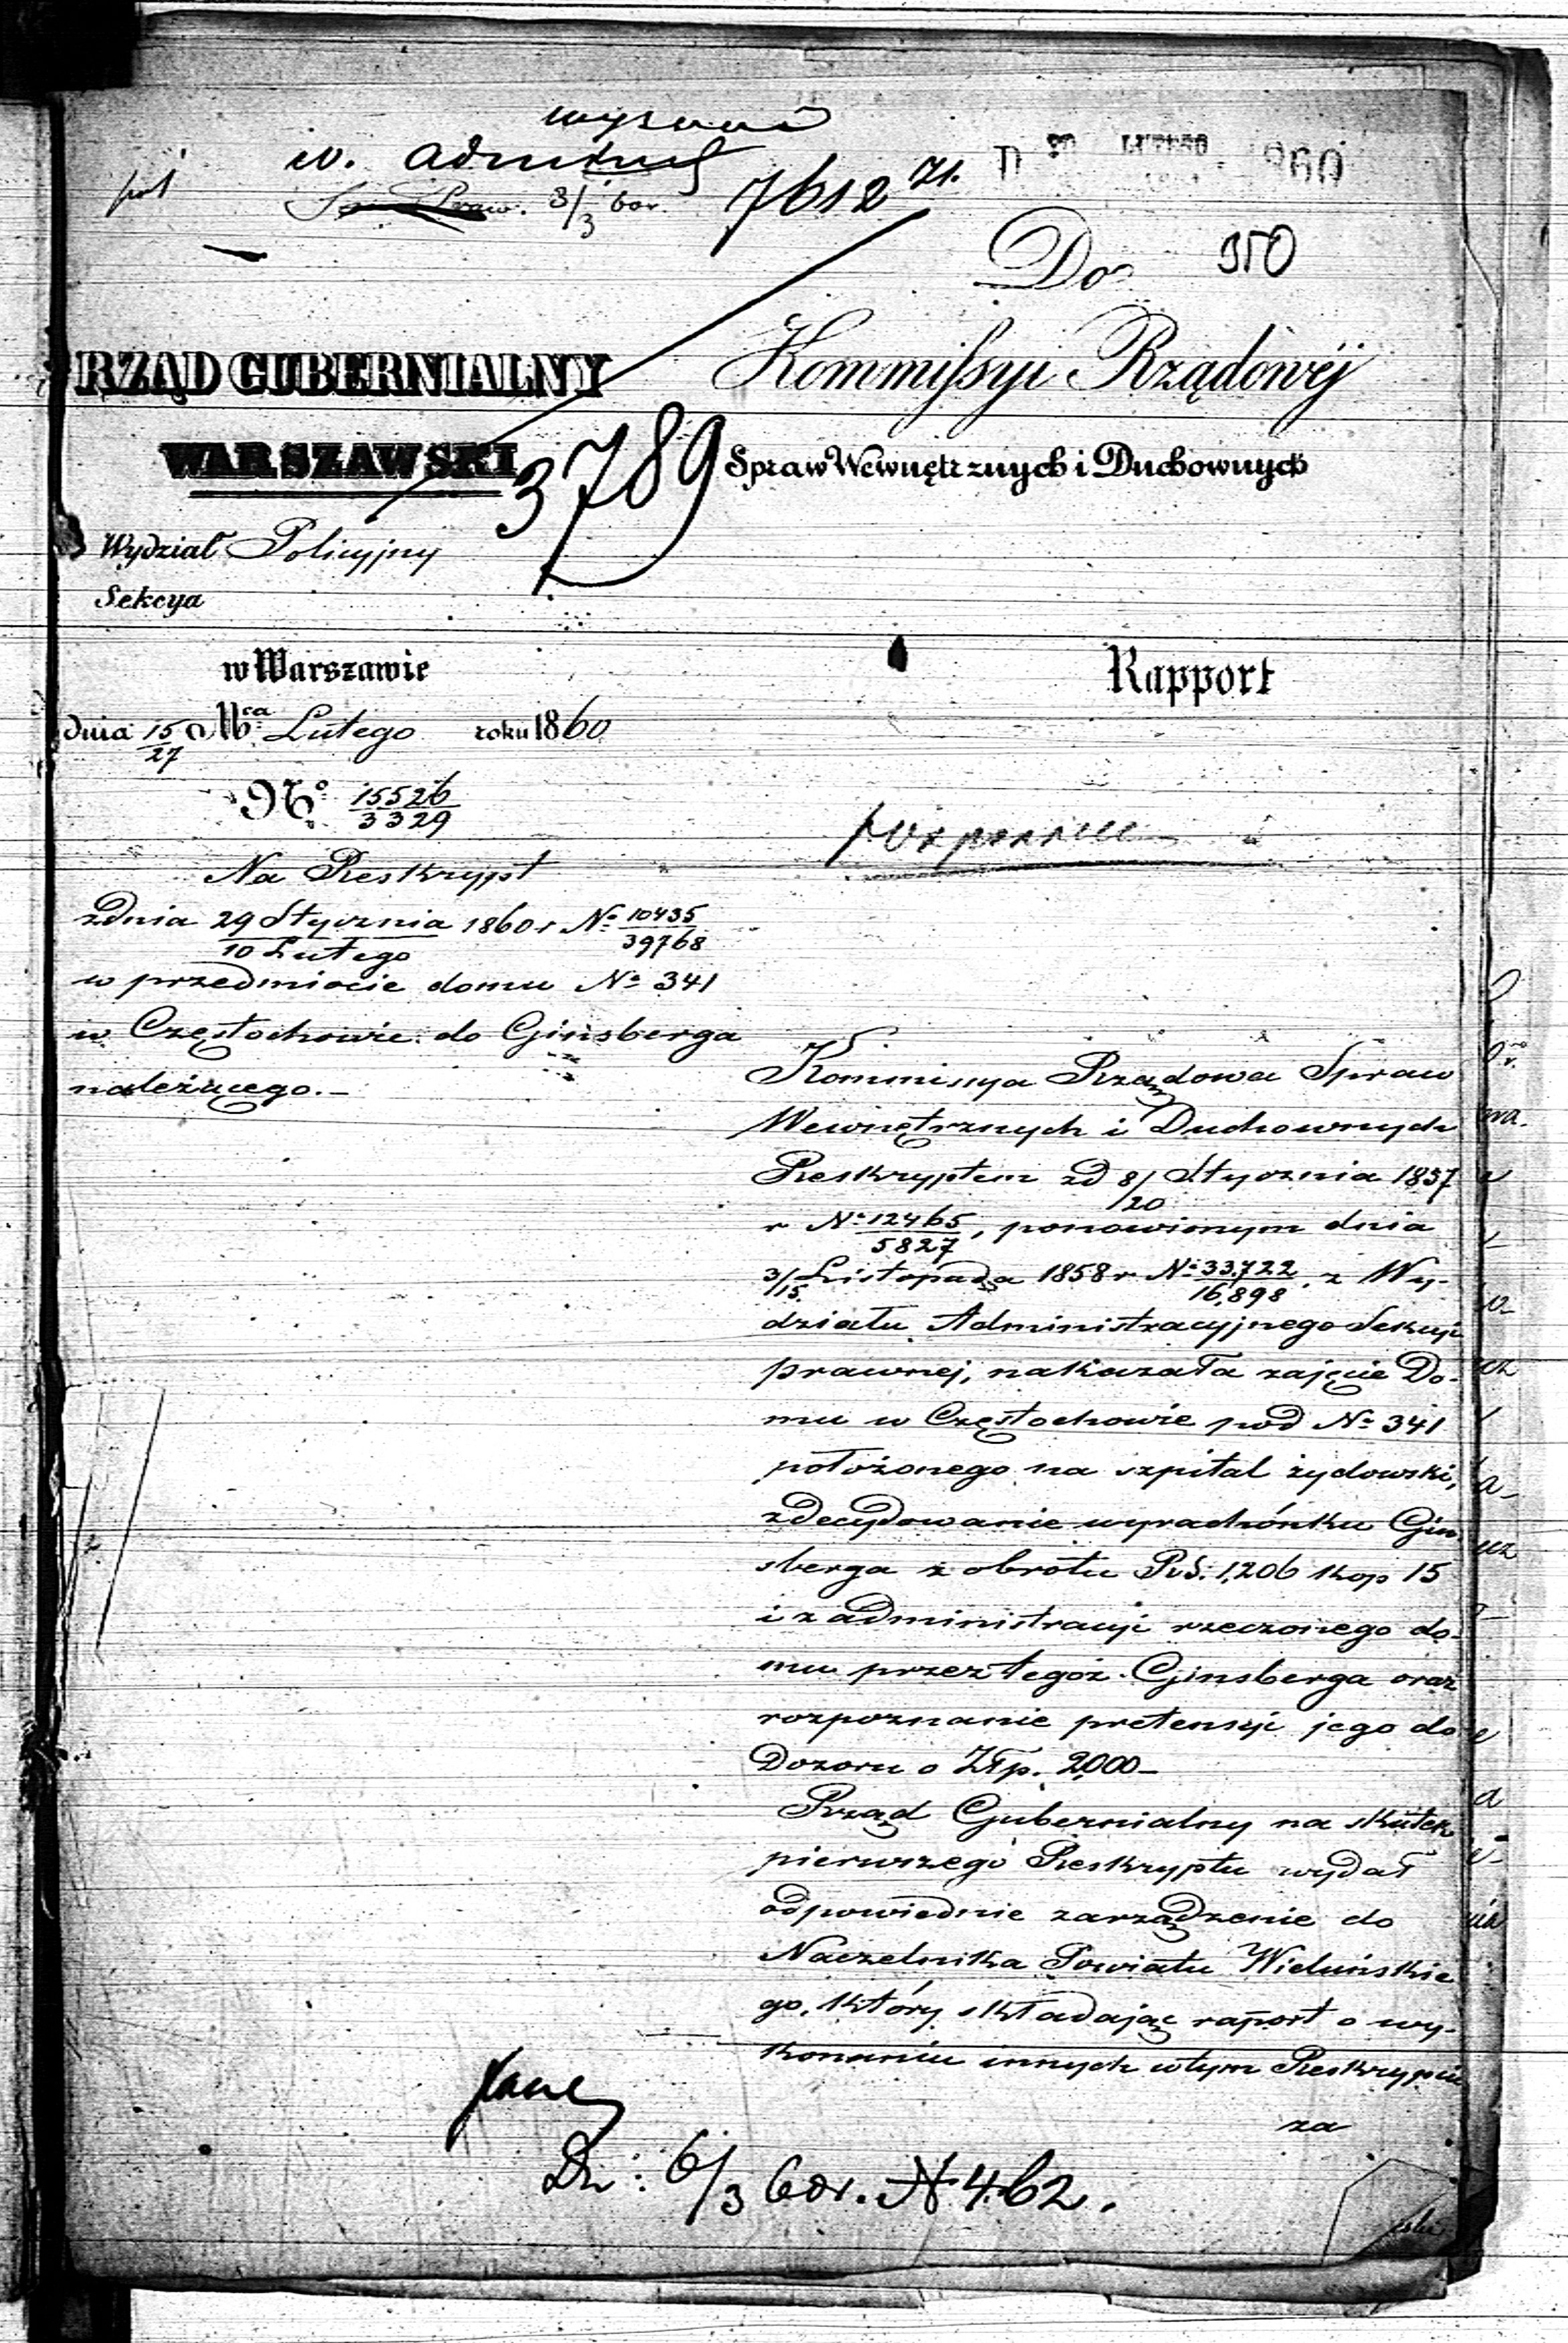 w. 
3/3 60r.
7612
Do
950
RZĄD GUBERNIALNY
WARSZAWSKI
3789
Kommissyi Rządowéj
Spraw Wewnętrznych i Duchownych
Wydział Policyjny
Sekcya
w Warszawie
Rapport
dnia 15/27 Mca Lutego roku 1860
No 15526/3329
Na Reskrypt
z dnia 29 Stycznia/10 Lutego 1860 r No 10435/39768
w przedmiocie domu No 341
w Częstochowie do Ginsberga
należącego.—
Kommissya Rządowa Spraw
Wewnętrznych i Duchownych
Reskryptem z d 8/20 Stycznia 1857
r No 12465/5827, ponowionym dnia
3/15 Listopada 1858 r No 33,722/16,898, z Wy-
działu Administracyjnego Sekcyi
prawnej, nakazała zajęcie Do-
mu w Częstochowie pod No 341
położonego na szpital żydowski,
zdecydowanie wyrachónku Gin-
sberga z obrotu Rs: 1,206 kop 15
i z administracyi rzeczonego do-
mu przez tegoż Ginsberga oraz
rozpoznanie pretensyi jego do
Dozoru o Złp. 2,000—
Rząd Gubernialny na skutek
pierwszego Reskryptu wydał
odpowiednie zarządzenie do
Naczelnika Powiatu Wieluńskie
go, który składając raport o wy-
konaniu innych w tym Reskrypcie
za
Dn: 6/3 60r. N 462.